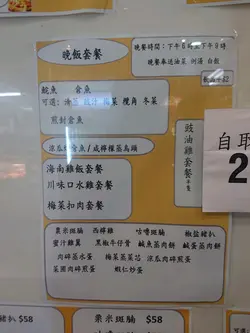 晚飯套餐
晚餐時間：下午6時至下午9時
晚餐奉送油菜 例湯 白飯
鯇魚 倉魚
可選：油蒸 豉汁 梅菜 欖角 冬菜
煎封倉魚
涼瓜燜倉魚/咸檸檬蒸烏頭
海南雞飯套餐
川味口水雞套餐
梅菜扣肉套餐
豉油雞套餐
半隻
粟米斑腩 西檸雞 咕嚕斑腩 椒鹽豬扒
蜜汁雞翼 黑椒牛仔骨 鹹魚蒸肉餅 鹹蛋蒸肉餅
肉碎蒸水蛋 梅菜蒸菜芯 涼瓜肉碎煎蛋
菜圃肉碎煎蛋 蝦仁炒蛋
自取
2
豬扒 $58
粟米斑腩 $58